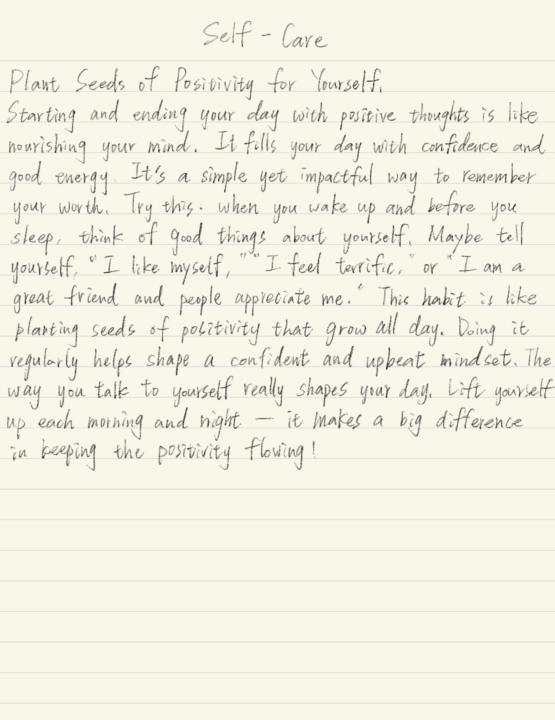 Self - Care
Plant Seeds of Positivity for Yourself.
Starting and ending your day with positive thoughts is like
nourishing your mind. It fills your day with confidence and
good energy. It's a simple yet impactful way to remember
your worth. Try this: when you wake up and before you
sleep, think of good things about yourself. Maybe tell
yourself, "I like myself," "I feel terrific," or "I am a
great friend and people appreciate me." This habit is like
planting seeds of positivity that grow all day. Doing it
regularly helps shape a confident and upbeat mindset. The
way you talk to yourself really shapes your day. Lift yourself
up each morning and night — it makes a big difference
in keeping the positivity flowing!